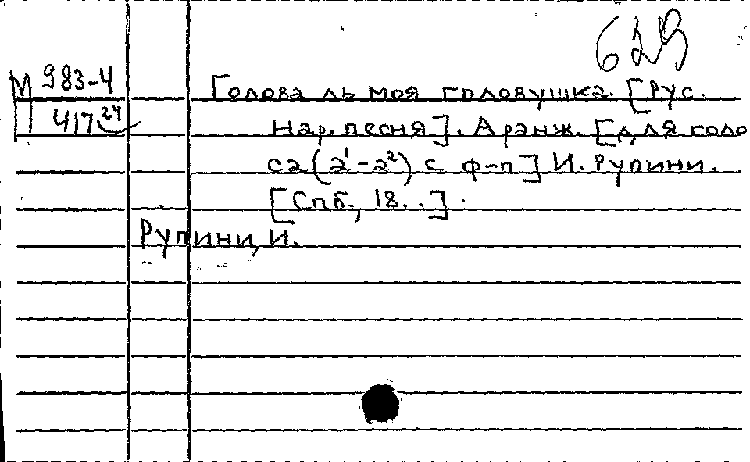 629
М 983-4
417 24
Голова ль моя головушка. [Рус.
Нар. песня]. Аранж. [для голо
са (а¹-а²) с ф-п] И. Рупини.
[Спб., 18..].
Рупини, И.